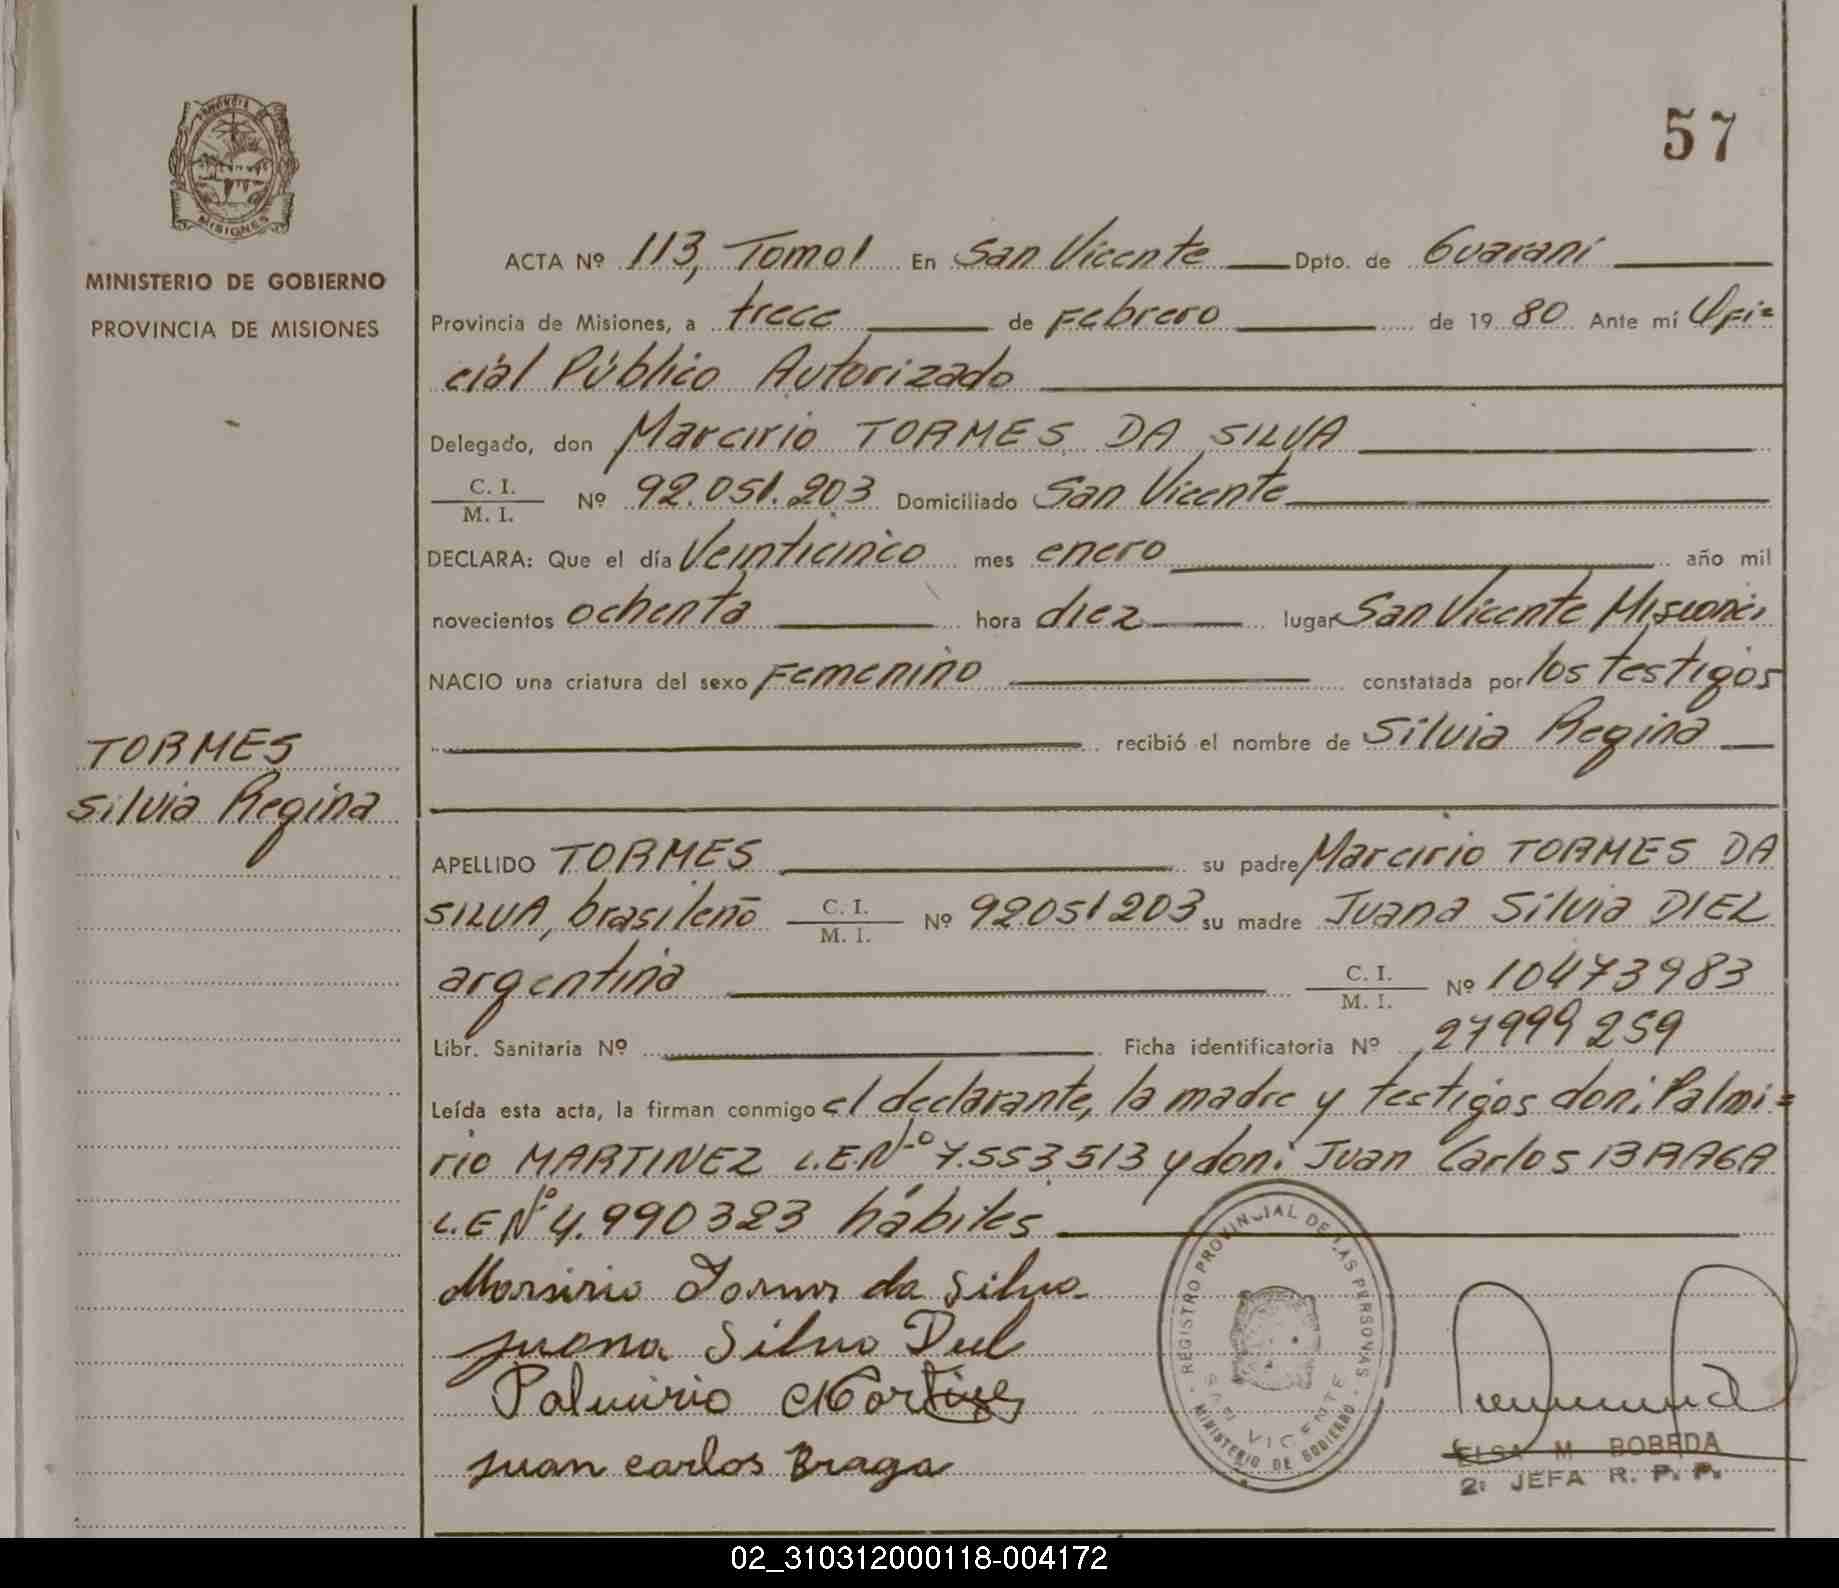 57
PROVINCIA
MISIONES
MINISTERIO DE GOBIERNO
PROVINCIA DE MISIONES
ACTA Nº 113, Tomo I En San Vicente Dpto. de Guaraní
Provincia de Misiones, a trece de Febrero de 19 80 Ante mí Ofi=
cial Público Autorizado
Delegado, don Marcirio TORMES DA SILVA
C. I.
M. I. Nº 92.051.203 Domiciliado San Vicente
DECLARA: Que el día Veinticinco mes enero año mil
novecientos ochenta hora diez lugar San Vicente Misiones
NACIO una criatura del sexo Femenino constatada por los testigos
recibió el nombre de Silvia Regina
TORMES
Silvia Regina
APELLIDO TORMES su padre Marcirio TORMES DA
SILVA, brasileño C. I. M. I. Nº 92051203 su madre Juana Silvia DIEL
argentina C. I. M. I. Nº 10473983
Libr. Sanitaria Nº Ficha identificatoria Nº 27999259
Leída esta acta, la firman conmigo el declarante, la madre y testigos don: Palmi=
rio MARTINEZ L.E.Nº 7.553513 y don: Juan Carlos BRAGA
L.E Nº 4.990323 hábiles
Marsirio Tormes da Silva
juana Silvia Diel
Palmirio Martinez
juan carlos Braga
REGISTRO PROVINCIAL DE LAS PERSONAS
SAN VICENTE
MINISTERIO DE GOBIERNO
ELSA M BOBEDA
2: JEFA R. P. P.
02_310312000118-004172